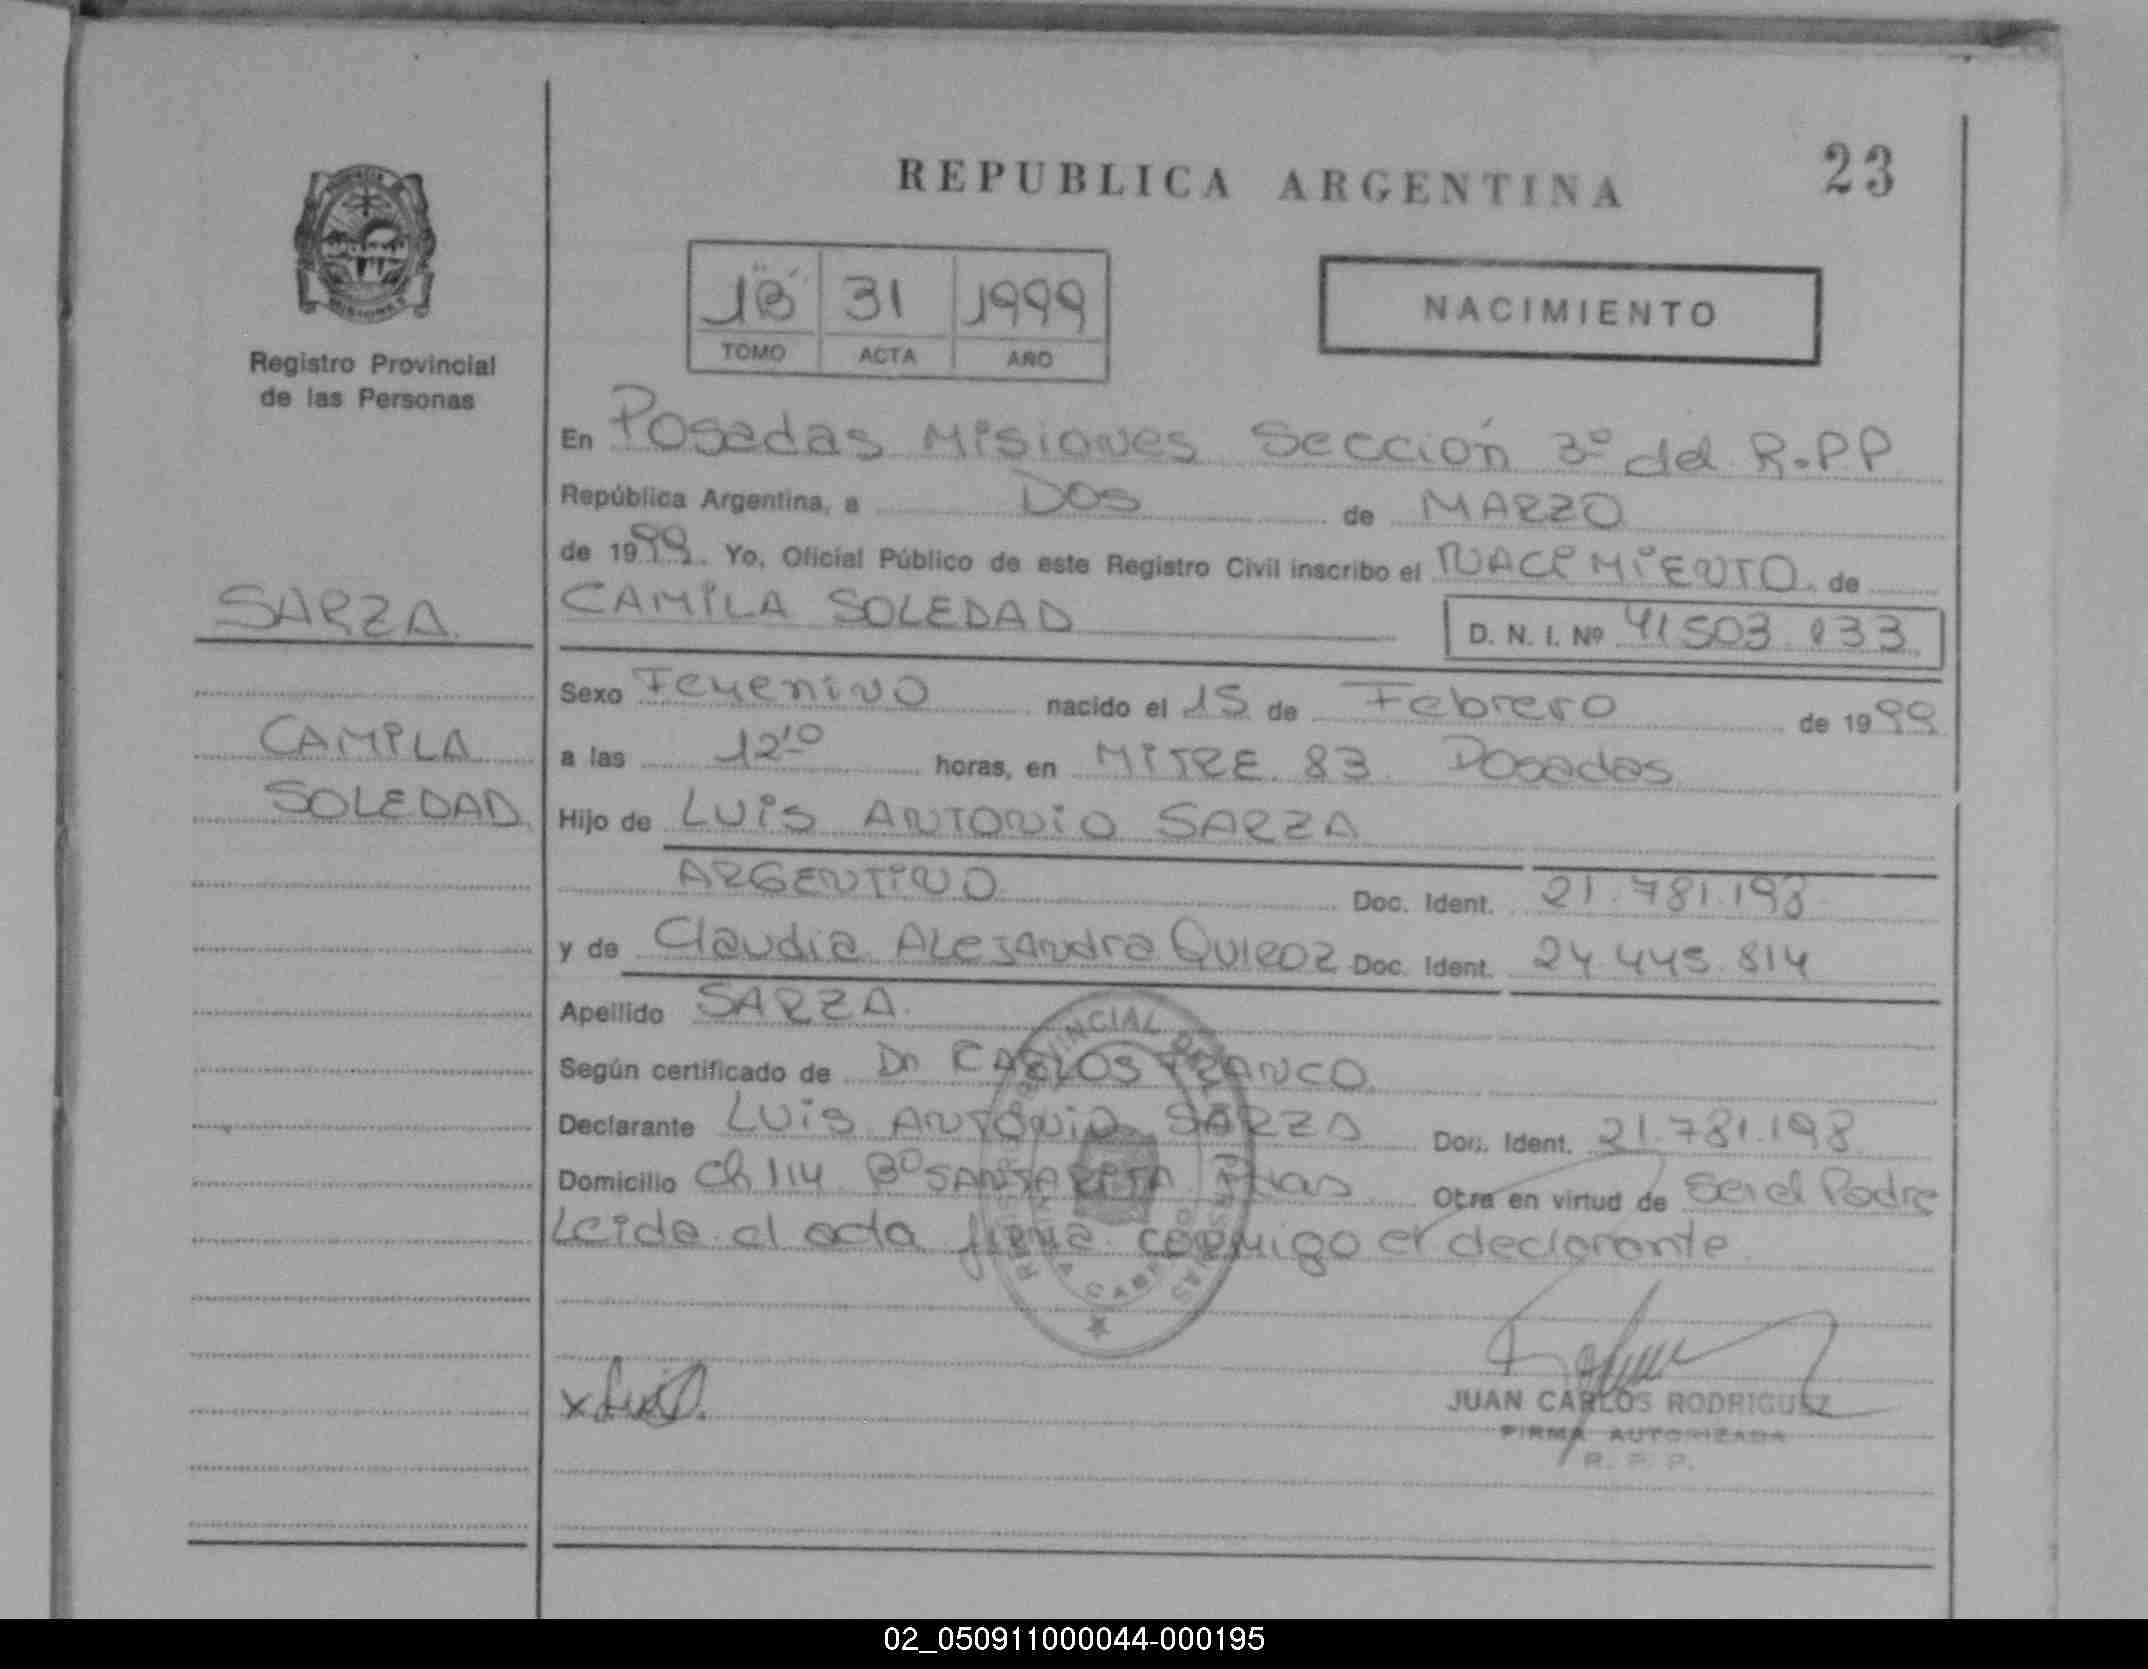 REPUBLICA ARGENTINA
23
1B 31 1999
TOMO ACTA AÑO
NACIMIENTO
Registro Provincial
de las Personas
En Posadas Misiones Sección 3º del R.PP
República Argentina, a Dos de MARZO
de 1999. Yo, Oficial Público de este Registro Civil inscribo el NACIMIENTO de
SARZA
CAMILA SOLEDAD
D. N. I. Nº 41503.033
Sexo Femenino nacido el 15 de Febrero de 1999
CAMILA
a las 12'10 horas, en MITRE 83 Posadas
SOLEDAD
Hijo de LUIS ANTONIO SARZA
ARGENTINO Doc. Ident. 21.781.198
y de Claudia ALEJANDRA QUIROZ Doc. Ident. 24.445.814
Apellido SARZA
Según certificado de Dr CARLOS FRANCO
Declarante LUIS ANTONIO SARZA Doc. Ident. 21.781.198
Domicilio Ch 114 Bº SANTA RITA Pdas Otra en virtud de Ser el Padre
Leida el acta firma conmigo el declarante
JUAN CARLOS RODRIGUEZ
FIRMA AUTORIZADA
R. P. P.
02_050911000044-000195